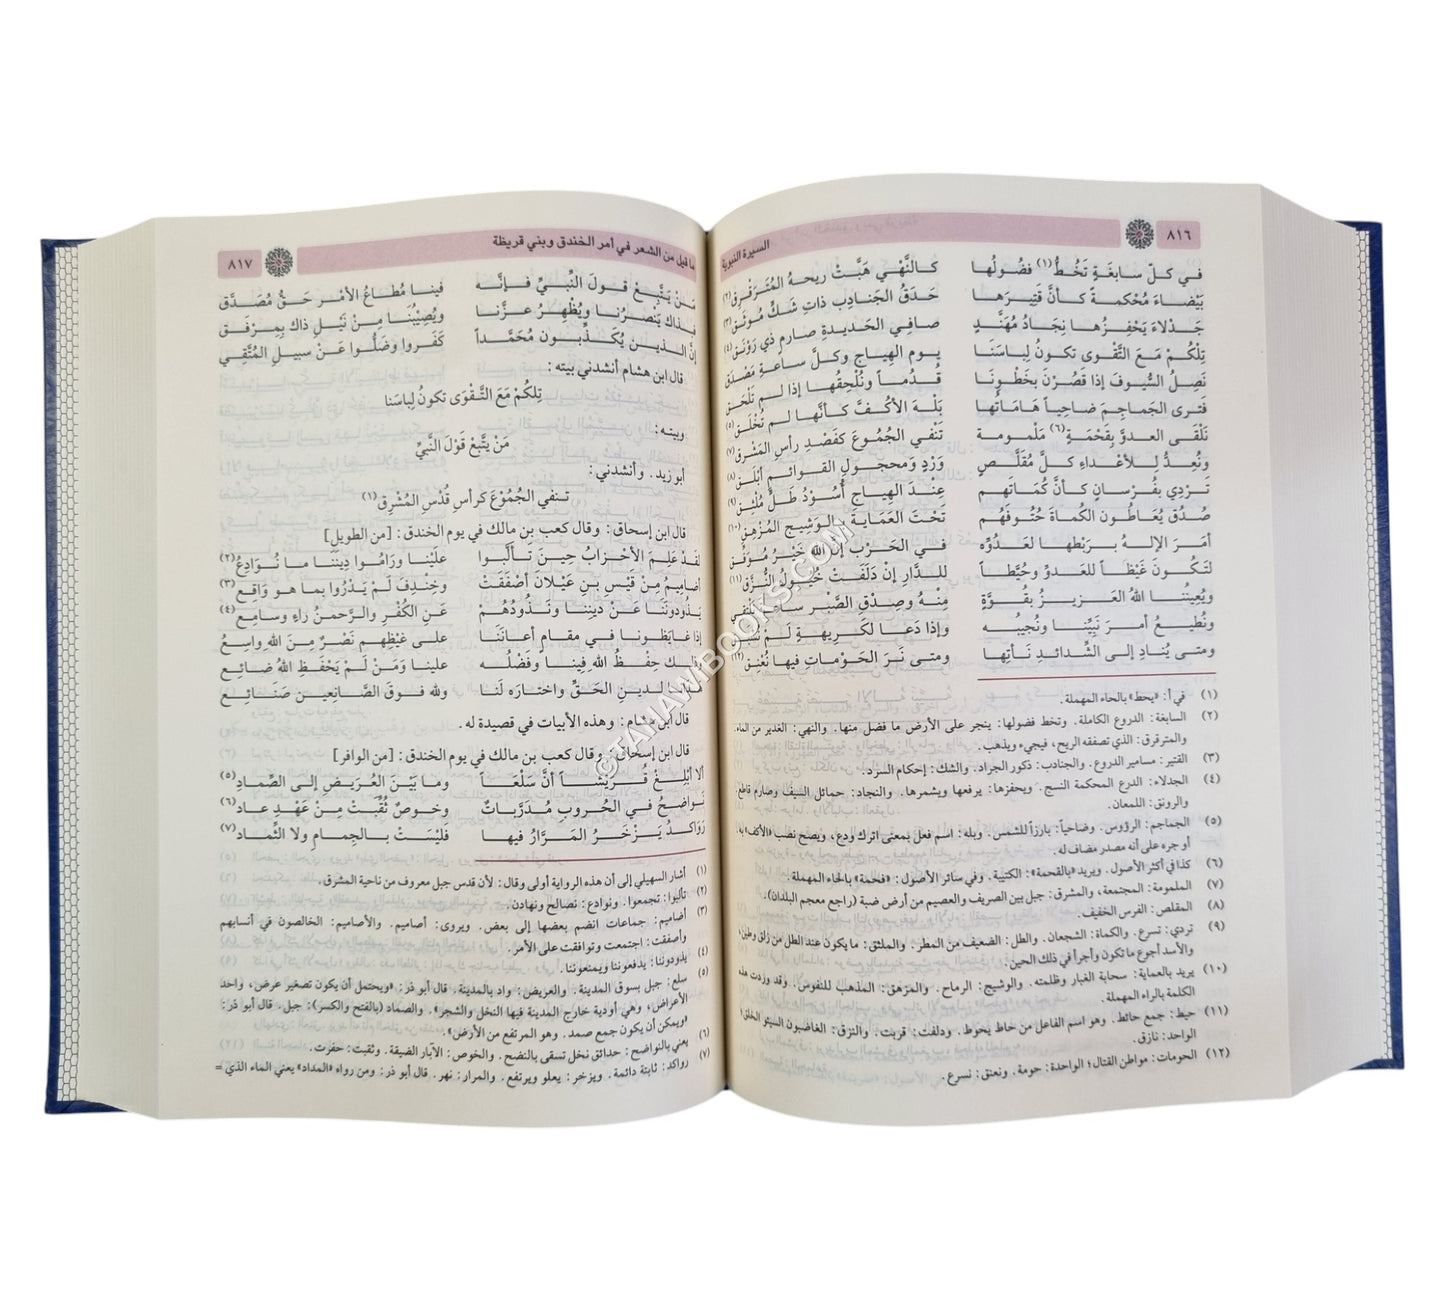 ٨١٦
السيرة النبوية
في كلّ سابغَةٍ تَخُطُّ(١) فضُولُها كالنَّهْيِ هَبَّتْ ريحهُ المُتَرَقْرِقِ(٢)
بَيْضاءَ مُحْكمةً كأنَّ قَتِيرَها حَدَقُ الجَنادِب ذاتِ شَكٍّ مُوثَقِ(٣)
جَدْلاءَ يَحْفِزُها نِجَادُ مُهَنَّدٍ صافِي الحَديدةِ صارِمٍ ذي رَوْنَقِ(٤)
تِلْكُمْ مَعَ التَّقْوى تكونُ لِباسَنَا يوم الهِياجِ وكلَّ ساعةِ مَصْدَقِ
نَصِلُ السُّيوفَ إذا قَصُرْنَ بخَطْونَا قُدُماً ونُلْحِقُها إذا لم تَلْحَقِ
فتَرى الجَماجِمَ ضَاحِياً هَامَاتُها بَلْهَ الأكُفَّ كأنَّها لم تُخْلَقِ(٥)
نَلْقَى العدوَّ بِفَخْمَةٍ(٦) مَلْمومة تَنْفِي الجُمُوعَ كقَصْدِ رأسِ المَشْرِقِ(٧)
ونُعِدُّ لِلأعْداءِ كلَّ مُقَلَّصٍ وَرْدٍ ومَحجولِ القوائمِ أبْلَقِ(٨)
تَرْدِي بفُرْسانٍ كأنَّ كُمَاتَهم عِنْدَ الهِياجِ أُسُودُ طَلٍّ مُلْثِقِ(٩)
صُدُقٌ يُعَاطُون الكُماةَ حُتُوفَهُم تَحْتَ العَمَايَةِ بالوَشِيجِ المُزْهِقِ(١٠)
أمَرَ الإلهُ بِرَبْطِها لعَدُوِّه في الحَرْبِ إنَّ اللهَ خَيْرُ مُوَفِّقِ
لتَكُونَ غَيْظاً للعَدوِّ وحُيَّطاً للدَّارِ إنْ دَلَفَتْ خُيُولُ النُّزَّقِ(١١)
ويُعِينُنا اللهُ العَزيزُ بقُوَّةٍ مِنْهُ وصِدْقِ الصَّبْرِ ساعةَ نَلْتَقي
ونُطِيعُ أمرَ نَبِيِّنا ونُجِيبُه وإذا دَعَا لكَرِيهةٍ لَمْ نُسْبَقِ
ومتى يُنادِ إلى الشَّدائدِ نَأتِها ومتى نَرَ الحَوْماتِ فيها نُعْنِقِ(١٢)
(١) في أ: «يحط» بالحاء المهملة.
(٢) السابغة: الدروع الكاملة. وتخط فضولها: ينجر على الأرض ما فضل منها. والنهي: الغدير من الماء.
والمترقرق: الذي تصفقه الريح، فيجيء ويذهب.
(٣) القتير: مسامير الدروع. والجنادب: ذكور الجراد. والشك: إحكام السرد.
(٤) الجدلاء: الدرع المحكمة النسج. ويحفزها: يرفعها ويشمرها. والنجاد: حمائل السيف وصارم قاطع.
والرونق: اللمعان.
(٥) الجماجم: الرؤوس. وضاحياً: بارزاً للشمس. وبله: اسم فعل بمعنى اترك ودع، ويصح نصب «الأكف» به
أو جره على أنه مصدر مضاف له.
(٦) كذا في أكثر الأصول. ويريد «بالفخمة»: الكتيبة. وفي سائر الأصول: «فحمة» بالحاء المهملة.
(٧) الملمومة: المجتمعة، والمشرق: جبل بين الصريف والعصيم من أرض ضبة (راجع معجم البلدان).
(٨) المقلص: الفرس الخفيف.
(٩) تردي: تسرع. والكماة: الشجعان. والطل: الضعيف من المطر. والملثق: ما يكون عند الطل من زلق وطين،
والأسد أجوع ما تكون وأجرأ في ذلك الحين.
(١٠) يريد بالعماية: سحابة الغبار وظلمته. والوشيج: الرماح. والمزهق: المذهب للنفوس. وقد وردت هذه
الكلمة بالراء المهملة.
(١١) حيط: جمع حائط. وهو اسم الفاعل من حاط يحوط. ودلفت: قربت. والنزق: الغاضبون السيئو الخلق؛
الواحد: نازق.
(١٢) الحومات: مواطن القتال؛ الواحدة: حومة. ونعنق: نسرع.
ما قيل من الشعر في أمر الخندق وبني قريظة
٨١٧
مَنْ يَتَّبِعْ قولَ النَّبيِّ فإنَّه فينا مُطاعُ الأمْرِ حَقُّ مُصَدَّقِ
فبذاك يَنْصُرُنا ويُظْهِرُ عزَّنا ويُصِيْبُنا مِنْ نَيْلِ ذاك بِمِرْفَقِ
إنَّ الذين يُكَذِّبون مُحَمَّداً كَفَروا وضَلُّوا عَنْ سبيلِ المُتَّقِي
قال ابن هشام أنشدني بيته:
تِلكُمْ مَعَ التَّقْوَى تكونُ لِباسَنا
وبيته:
مَنْ يتَّبِعْ قَوْلَ النَّبيِّ
أبو زيد. وأنشدني:
تَنفي الجُمُوْعَ كرأسِ قُدْسِ المُشْرِق(١)
قال ابن إسحاق: وقال كعب بن مالك في يوم الخندق: [من الطويل]
لقَدْ عَلِمَ الأحْزابُ حِينَ تألَّبوا علَيْنا ورَامُوا دِينَنا ما نُوَادِعُ(٢)
أضاميمُ مِنْ قَيْسِ بنِ عَيْلانَ أصْفَقَتْ وخِنْدِفَ لَمْ يَدْرُوا بما هو وَاقِع(٣)
يَذُودونَنَا عَنْ دينِنا ونَذُودُهُمْ عَنِ الكُفْرِ والرَّحمنُ راءٍ وسامِع(٤)
إذا غايَظُونا في مقامٍ أعانَنَا على غيْظِهم نَصْرٌ مِنَ اللهِ واسِعُ
وذلك حِفْظُ اللهِ فِينا وفَضْلُه علينا ومَنْ لَمْ يَحْفَظِ اللهُ ضائِع
هَدانا لدينِ الحَقِّ واختارَه لَنَا ولله فوقَ الصَّانِعين صَنائِع
قال ابن هشام: وهذه الأبيات في قصيدة له.
قال ابن إسحاق: وقال كعب بن مالك في يوم الخندق: [من الوافر]
ألا أبْلغْ قُرَيْشاً أنَّ سَلْعَاً وما بَيْنَ العُرَيضِ إلى الصِّمادِ(٥)
نَواضِحُ في الحُروبِ مُدَرَّباتٌ وخوصٌ ثُقِّبَتْ مِنْ عَهْدِ عاد(٦)
رَوَاكِدُ يَزْخَرُ المَرَّارُ فيها فلَيْسَتْ بالجِمامِ ولا الثِّماد(٧)
(١) أشار السهيلي إلى أن هذه الرواية أولى وقال: لأن قدس جبل معروف من ناحية المشرق.
(٢) تألبوا: تجمعوا. ونوادع: نصالح ونهادن.
(٣) أضاميم: جماعات انضم بعضها إلى بعض. ويروى: أصاميم. والأصاميم: الخالصون في أنسابهم
وأصفقت: اجتمعت وتوافقت على الأمر.
(٤) يذودوننا: يدفعوننا ويمنعوننا.
(٥) سلع: جبل بسوق المدينة. والعريض: واد بالمدينة. قال أبو ذر: «ويحتمل أن يكون تصغير عرض، واحد
الأعراض، وهي أودية خارج المدينة فيها النخل والشجر». والصماد (بالفتح والكسر): جبل. قال أبو ذر:
«ويمكن أن يكون جمع صمد. وهو المرتفع من الأرض».
(٦) يعني بالنواضح: حدائق نخل تسقى بالنضح. والخوص: الآبار الضيقة. وثقبت: حفرت.
(٧) رواكد: ثابتة دائمة. ويزخر: يعلو ويرتفع. والمرار: نهر. قال أبو ذر: ومن رواه «المداد» يعني الماء الذي =
©TAMAMBOOKS.COM